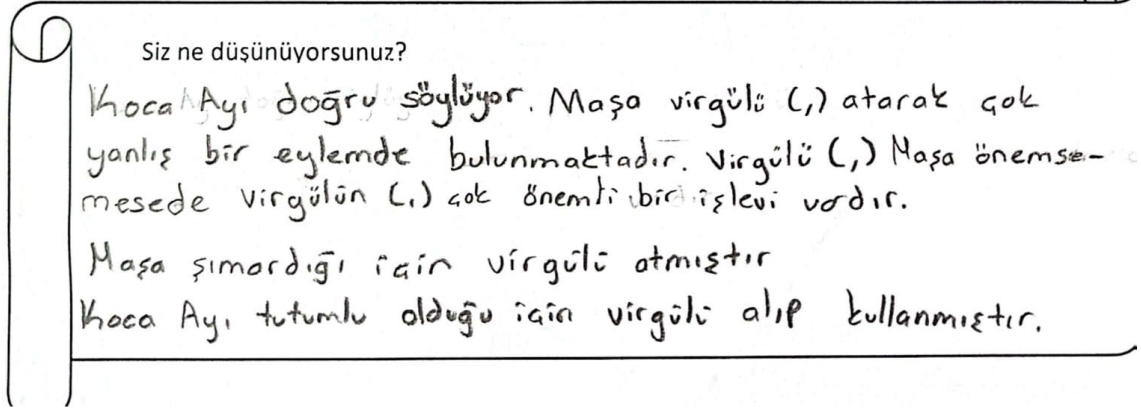 Siz ne düşünüyorsunuz?
Koca Ayı doğru söylüyor. Maşa virgülü (,) atarak çok
yanlış bir eylemde bulunmaktadır. Virgülü (,) Maşa önemse-
mesede virgülün (,) çok önemli bir işlevi vardır.
Maşa şımardığı için virgülü atmıştır
Koca Ayı tutumlu olduğu için virgülü alıp kullanmıştır.